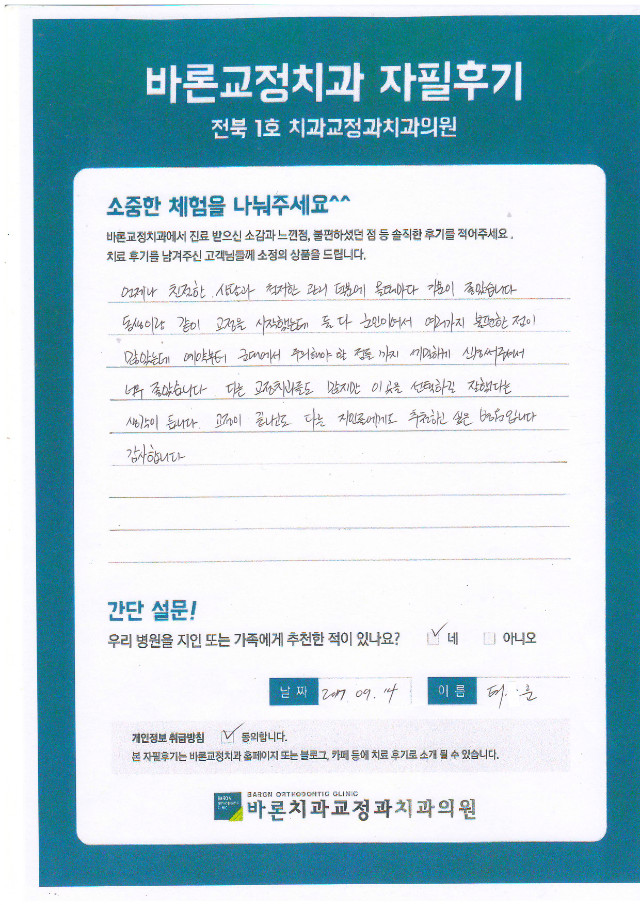 바론교정치과 자필후기
전북 1호 치과교정과치과의원
소중한 체험을 나눠주세요^^
바론교정치과에서 진료 받으신 소감과 느낀점, 불편하셨던 점 등 솔직한 후기를 적어주세요.
치료 후기를 남겨주신 고객님들께 소정의 상품을 드립니다.
언제나 친절한 상담과 철저한 관리 덕분에 올때마다 기분이 좋았습니다
동생이랑 같이 교정을 시작했는데 둘 다 군인이어서 여러가지 불편한 점이
많았는데 예약부터 군대에서 주의해야 할 점들 까지 세밀하게 신경써주셔서
너무 좋았습니다 다른 교정치과들도 많지만 이곳을 선택하길 잘했다는
생각이 듭니다. 교정이 끝나도 다른 지인들에게도 추천하고 싶은 병원입니다
감사합니다
간단 설문!
우리 병원을 지인 또는 가족에게 추천한 적이 있나요? 네 아니오
날짜 2017 09. 14 이름
개인정보 취급방침 동의합니다.
본 자필후기는 바론교정치과 홈페이지 또는 블로그, 카페 등에 치료 후기로 소개 될 수 있습니다.
BARON ORTHODONTIC CLINIC
바론치과교정과치과의원